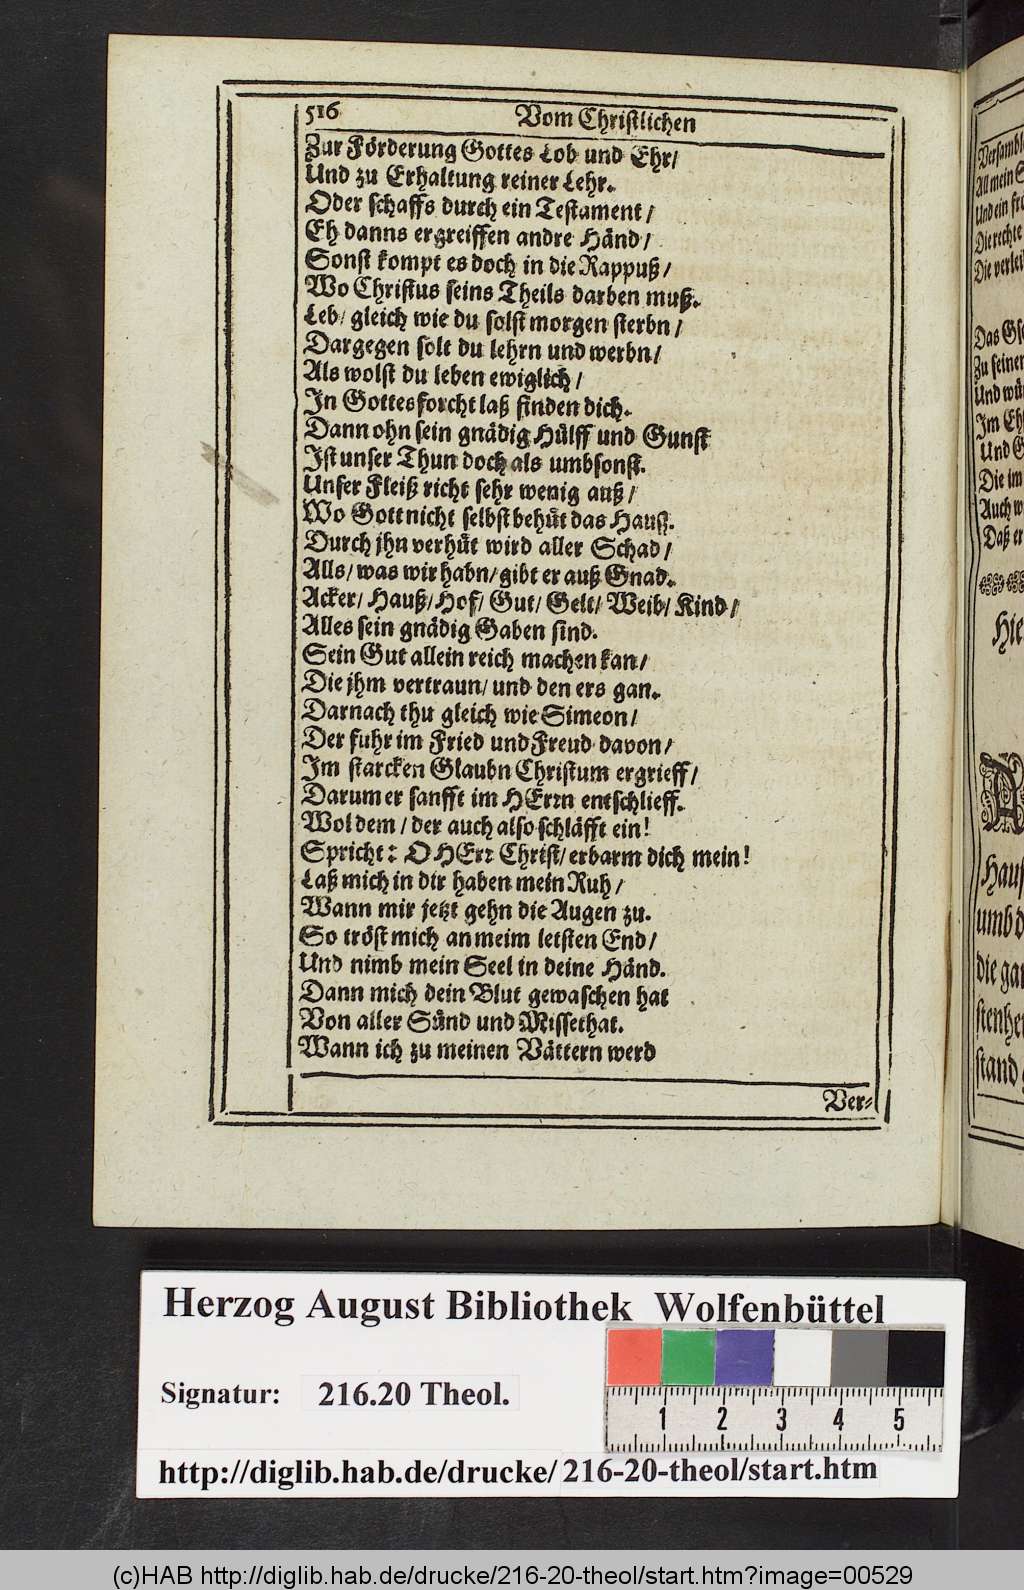 516 Vom Christlichen
Zur Förderung Gottes Lob und Ehr/
Und zu Erhaltung reiner Lehr.
Oder schaffs durch ein Testament/
Eh danns ergreiffen andre Händ/
Sonst kompt es doch in die Rappuß/
Wo Christus seins Theils darben muß.
Leb/ gleich wie du solst morgen sterbn/
Dargegen solt du lehrn und werbn/
Als wolst du leben ewiglich/
In Gottesforcht laß finden dich.
Dann ohn sein gnädig Hülff und Gunst
Ist unser Thun doch als umbsonst.
Unser Fleiß richt sehr wenig auß/
Wo Gott nicht selbst behüt das Hauß.
Durch jhn verhüt wird aller Schad/
Alls/ was wir habn/ gibt er auß Gnad.
Acker/ Hauß/ Hof/ Gut/ Gelt/ Weib/ Kind/
Alles sein gnädig Gaben sind.
Sein Gut allein reich machen kan/
Die jhm vertraun/ und den ers gan.
Darnach thu gleich wie Simeon/
Der fuhr im Fried und Freud davon/
Im starcken Glaubn Christum ergrieff/
Darum er sanfft im HErrn entschlieff.
Wol dem/ der auch also schläfft ein!
Spricht: O HErr Christ/ erbarm dich mein!
Laß mich in dir haben mein Ruh/
Wann mir jetzt gehn die Augen zu.
So tröst mich an meim letsten End/
Und nimb mein Seel in deine Händ.
Dann mich dein Blut gewaschen hat
Von aller Sünd und Missethat.
Wann ich zu meinen Vättern werd
Ver-
All mein
Und ein
Die rechte
Das
Zu seiner
Im
Und
Die im
Auch
Daß er
Hie
umb
die
stand
Herzog August Bibliothek Wolfenbüttel
Signatur: 216.20 Theol.
1 2 3 4 5
http://diglib.hab.de/drucke/216-20-theol/start.htm
(c)HAB http://diglib.hab.de/drucke/216-20-theol/start.htm?image=00529